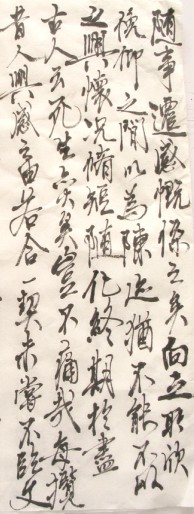 随事遷感慨係之矣向之所欣
俛仰之間以為陳迹猶不能不以
之興懷况脩短随化終期扵盡
古人云死生亦大矣豈不痛哉每攬
昔人興感之由若合一契未嘗不臨文